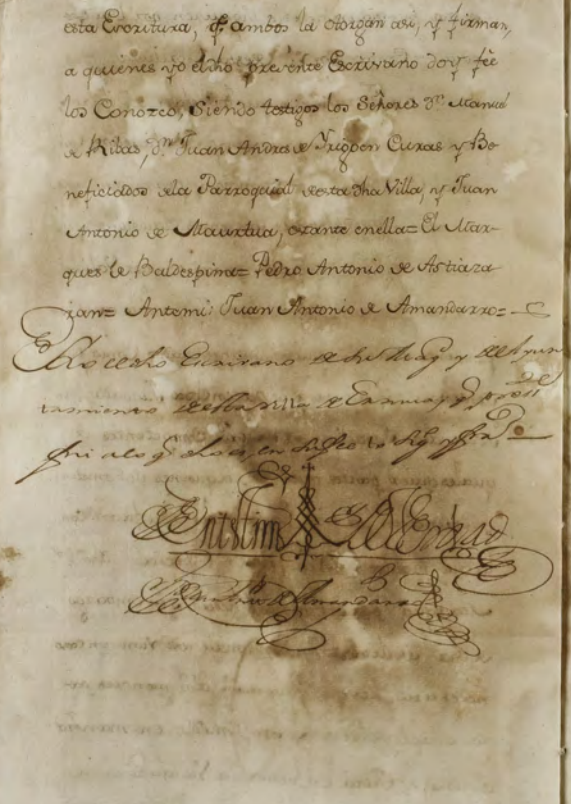 esta Escritura, q.e ambos la otorgan asi, y firman,
a quienes yo el dho presente Escrivano doy feè
los Conozco, siendo testigos los Señores Dn. Manuel
de Ribas, Dn. Juan Andres de Yrigoien Curas y Be
neficiados dela Parroquial de esta dha Villa, y Juan
Antonio de Mauxtua, estante enella= El Mar-
ques de Baldespina= Pedro Antonio de Astiaza
ran= Antemi: Juan Antonio de Amandarro=
Yo el dho Escrivano de su Mag. y del Ayun
tamiento de la Villa de
fui a lo q. en fee lo y
En testim de Verdad
Juan Antto de Amandarro